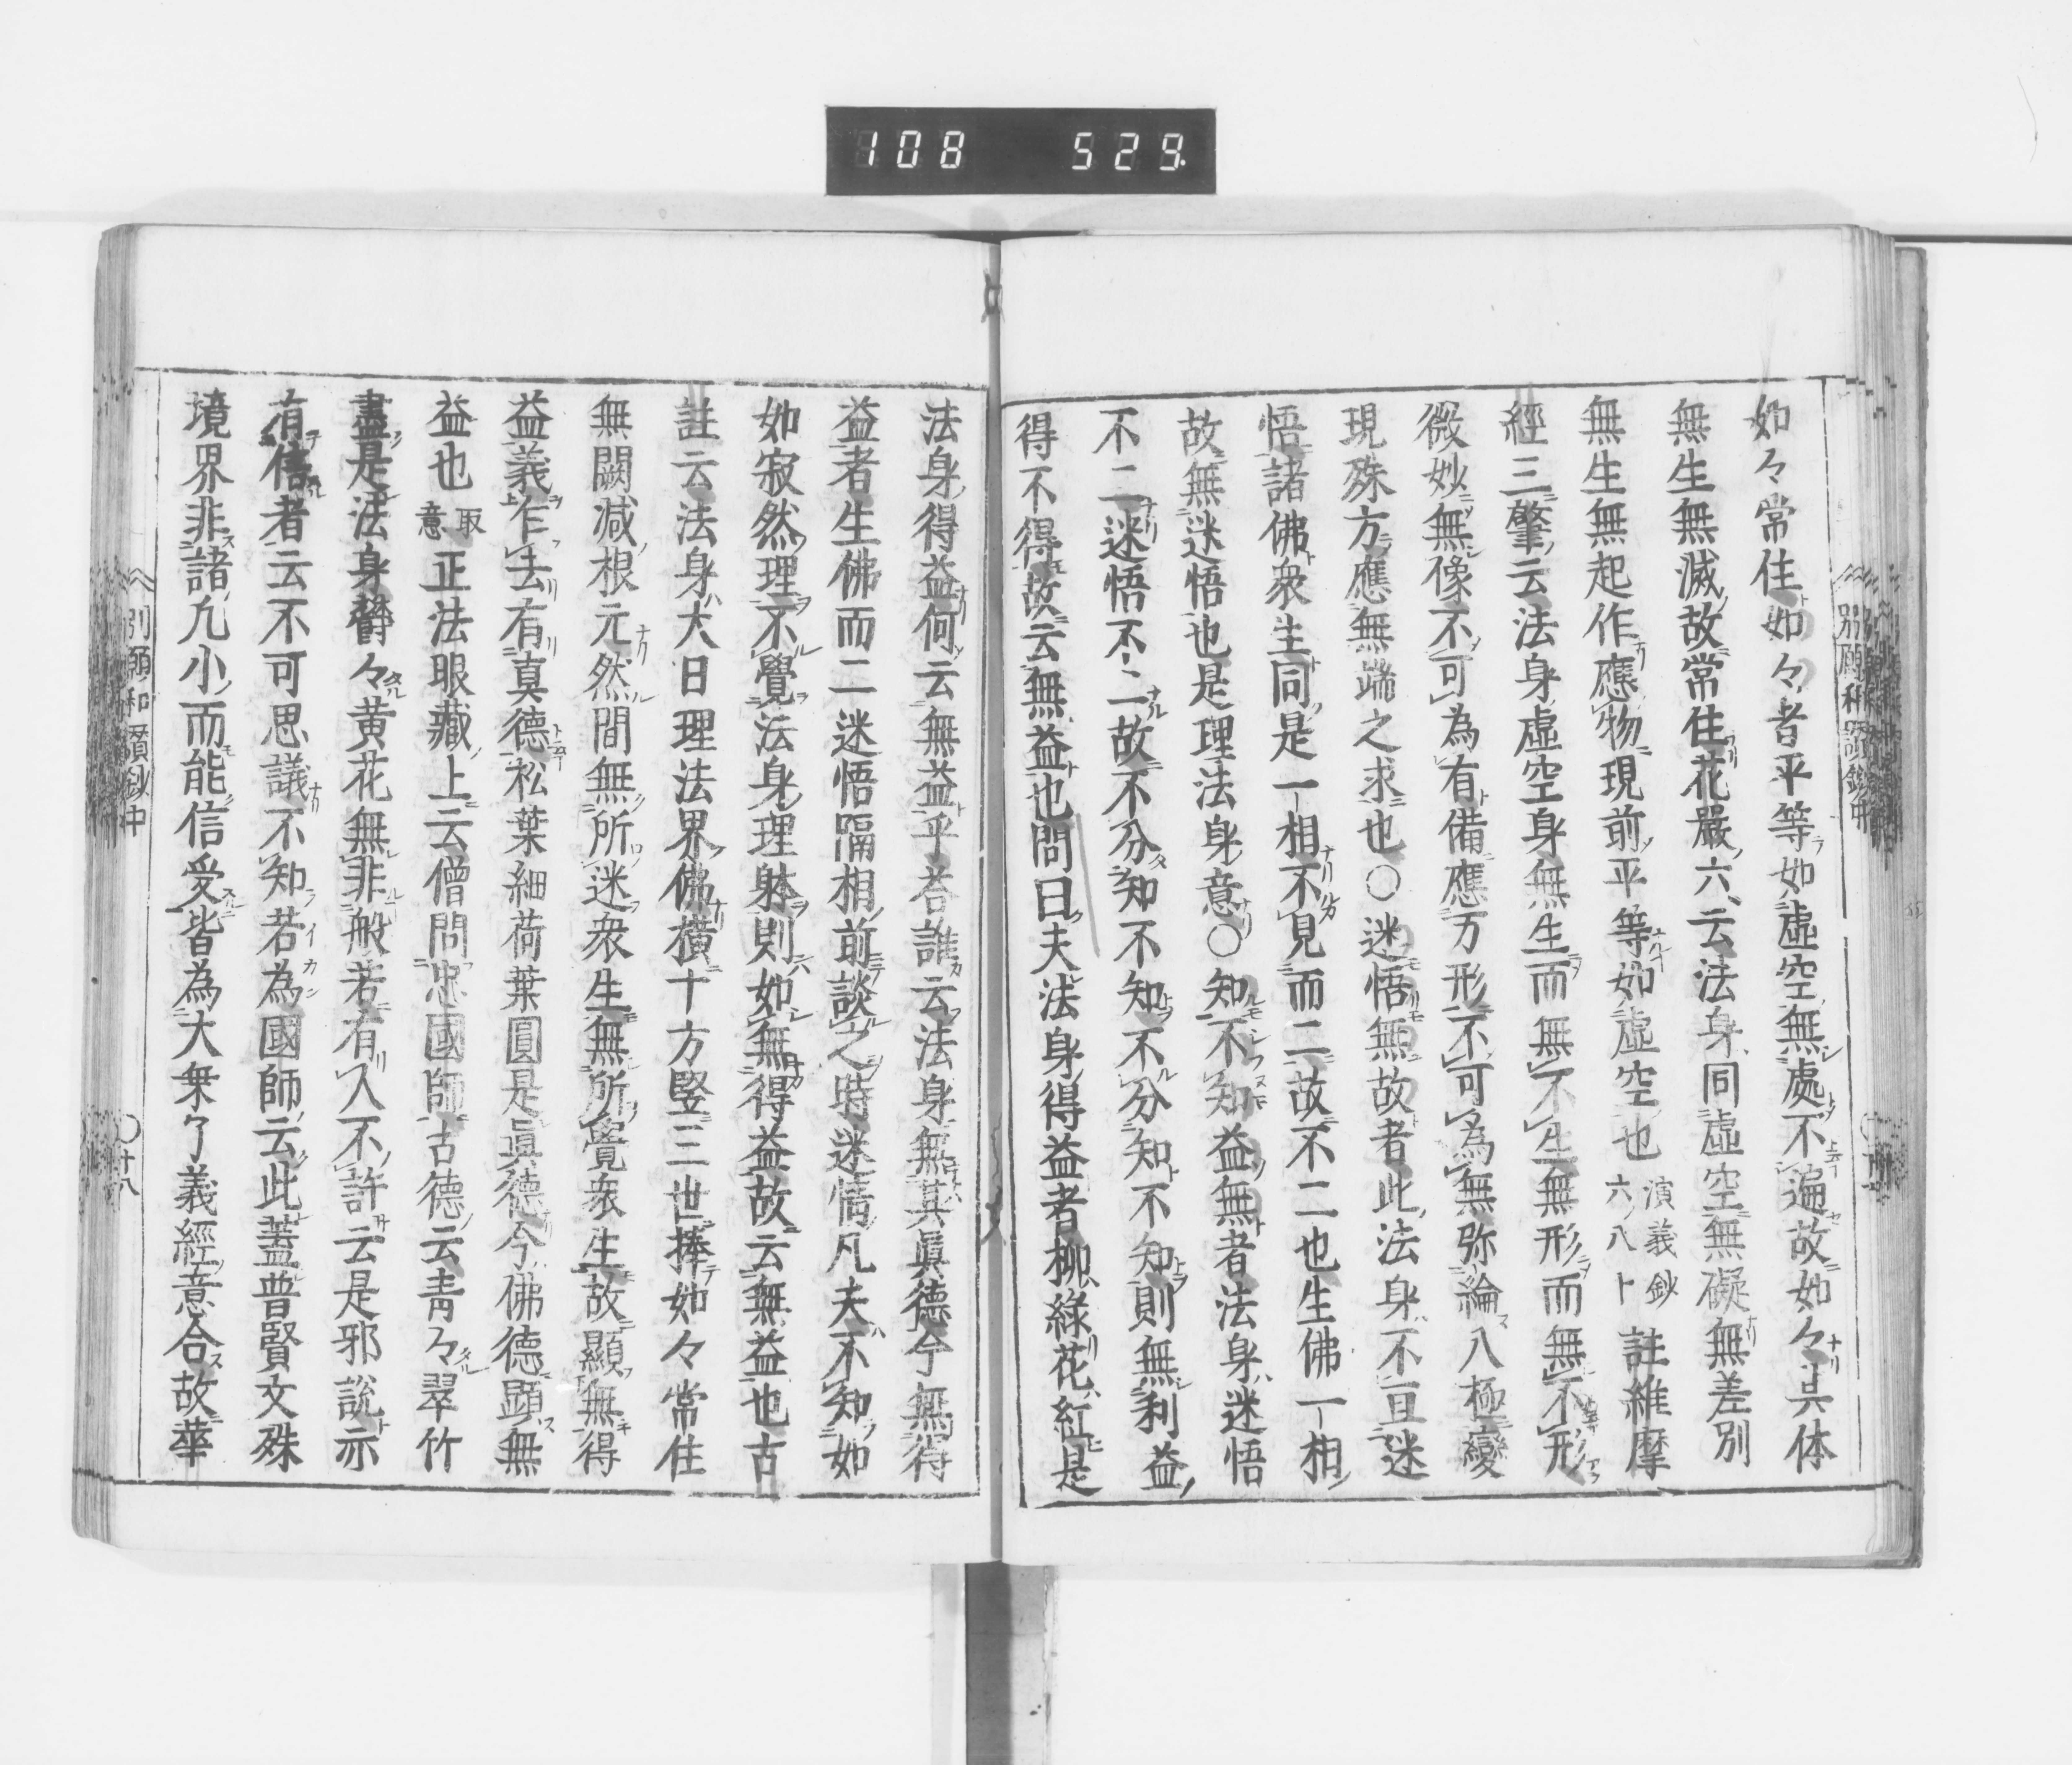 108 529.
如々常住如々者平等如虛空無處不遍故如々具体
無生無滅故常住花嚴六云法身同虛空無礙無差別
無生無起作應物現前平等如虛空也演義鈔六ノ八卜註維摩
經三肇云法身虛空身無生而無不生無形而無不形
微妙無像不可為有備應万形不可為無弥綸八極變
現殊方應無端之求也○迷悟無故者此法身不亘迷
悟諸佛衆生同是一相不見而二故不二也生佛一相
故無迷悟也是理法身意○知不知益無者法身迷悟
不二迷悟不二故不分知不知不分知不知則無利益
得不得故云無益也問曰夫法身得益者柳緑花紅是
法身得益何云無益乎荅誰云法身無其眞德今無得
益者生佛而二迷悟隔相前談之時迷情凡夫不知如
如寂然理不覺法身理躰則如無得益故云無益也古
註云法身大日理法界佛橫十方竪三世捧如々常住
無闕減根元然間無所迷衆生無所覺衆生故顯無得
益義乍去有真德松葉細荷葉圓是眞德今佛德顯無
益也取意正法眼藏上云僧問忠國師古德云青々翠竹
盡是法身欝々黄花無非般若有人不許云是邪說亦
有信者云不可思議不知若為國師云此蓋普賢文殊
境界非諸凡小而能信受皆為大乗了義經意合故華
別願和讃鈔中
○十八